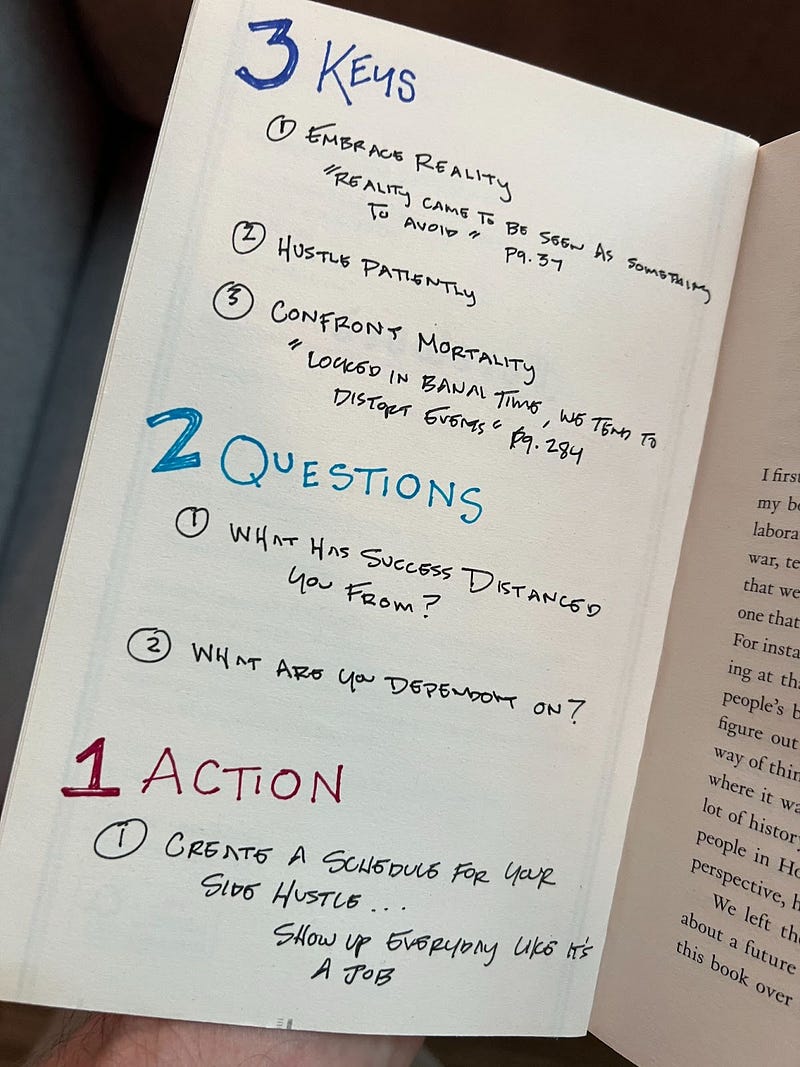 3 KEYS
① EMBRACE REALITY
"REALITY CAME TO BE SEEN AS SOMETHING
TO AVOID" Pg. 37
② HUSTLE PATIENTLY
③ CONFRONT MORTALITY
"LOCKED IN BANAL TIME, WE TEND TO
DISTORT EVENTS" Pg. 284
2 QUESTIONS
① WHAT HAS SUCCESS DISTANCED
YOU FROM?
② WHAT ARE YOU DEPENDENT ON?
1 ACTION
① CREATE A SCHEDULE FOR YOUR
SIDE HUSTLE...
SHOW UP EVERYDAY LIKE IT'S
A JOB
I first
my be
labora
war, te
that we
one that
For insta
ing at tha
people's b
figure out
way of thin
where it wa
lot of history
people in Ho
perspective, h
We left the
about a future
this book over